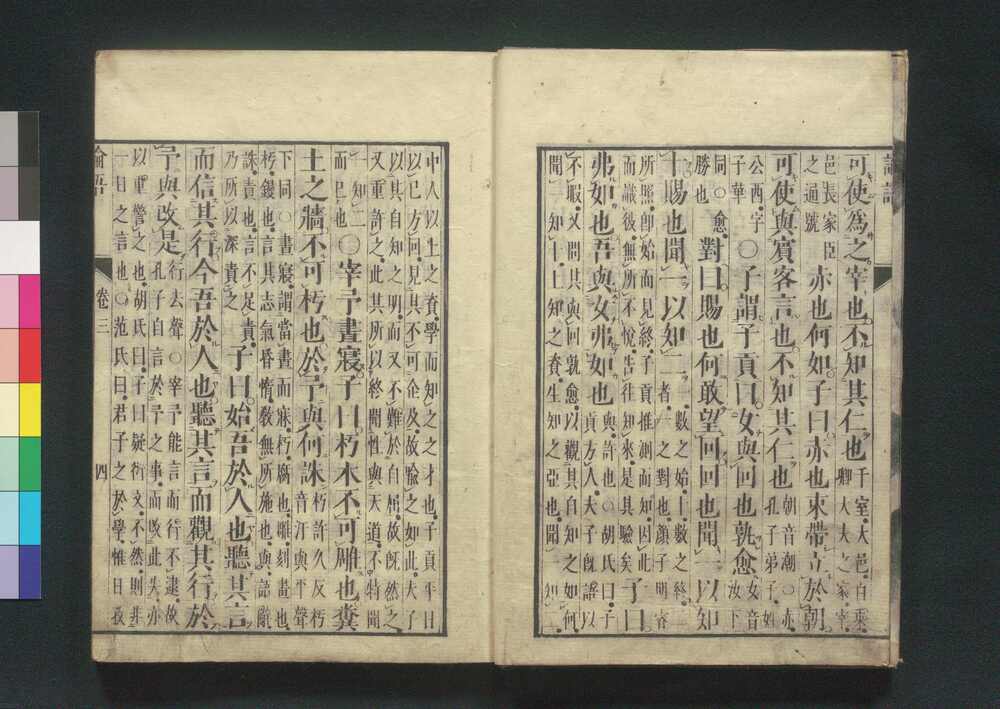 論語
可使爲之宰也不知其仁也
千室大邑百乘
卿大夫之家宰
邑長家臣
之通號
赤也何如子曰赤也束帶立於朝
可使與賓客言也不知其仁也
朝音潮○赤
孔子弟子姓
公西字
子華
○子謂子貢曰女與回也孰愈
女音
汝下
同○愈
勝也
對曰賜也何敢望回回也聞一以知
十賜也聞一以知二
一數之始十數之終
二者一之對也顏子明睿
所照即始而見終子貢推測而知因此
而識彼無所不悅告往知來是其驗矣
子曰
弗如也吾與女弗如也
與許也○胡氏曰子
貢方人夫子既語以
不暇又問其與回孰愈以觀其自知之如何
聞一知十上知之資生知之亞也聞一知二
中人以上之資學而知之之才也子貢平日
以己方回見其不可企及故喻之如此夫子
以其自知之明而又不難於自屈故既然之
又重許之此其所以終聞性與天道不特聞
一知二
而已也
○宰予晝寢子曰朽木不可雕也糞
土之牆不可杇也於予與何誅
朽許久反杇
音汙與平聲
下同○晝寢謂當晝而寐朽腐也雕刻畫也
杇鏝也言其志氣昏惰教無所施也與語辭
誅責也言不足責
乃所以深責之
子曰始吾於人也聽其言
而信其行今吾於人也聽其言而觀其行於
予與改是
行去聲○宰予能言而行不逮故
孔子自言於予之事而改此失亦
以重警之也胡氏曰子曰疑衍文不然則非
一日之言也○范氏曰君子之於學惟日孜
論語
卷三
四